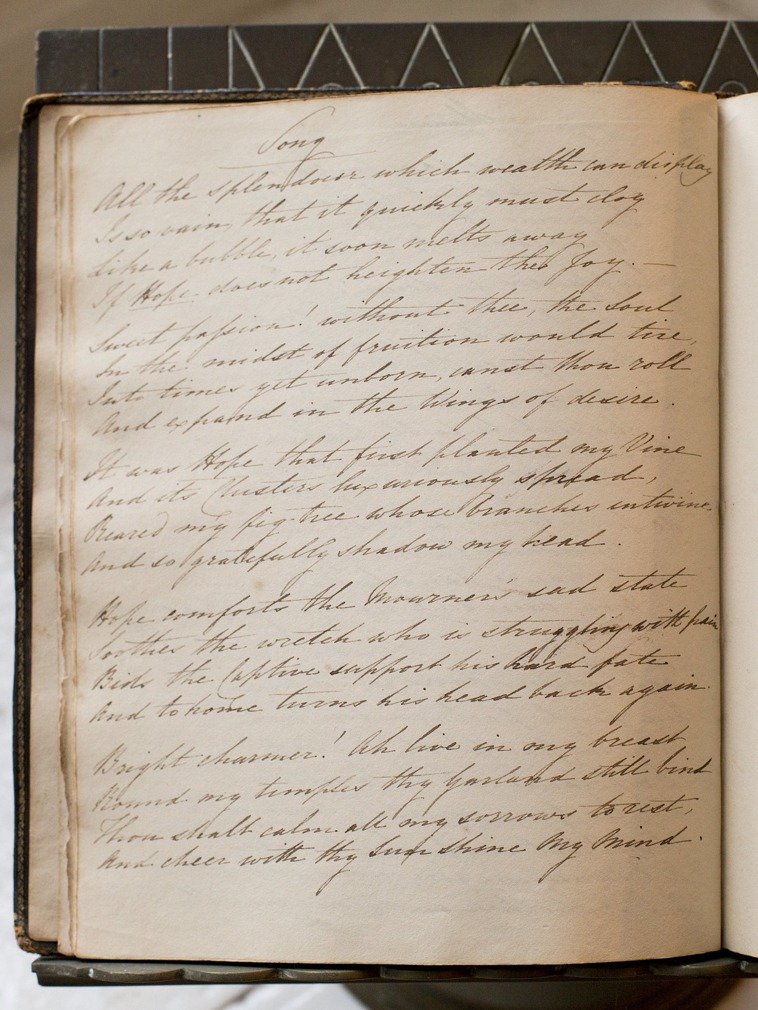 Song
All the splendour which wealth can display
Is so vain, that it quickly must cloy
Like a bubble, it soon melts away
If Hope does not heighten the Joy. —
Sweet passion! without thee, the Soul
In the midst of fruition would tire,
Into times yet unborn, canst thou roll
And expand in the Wings of desire.
It was Hope that first planted my Vine
And its Clusters luxuriously spread,
Reared my fig-tree whose branches intwine
And so gratefully shadow my head.
Hope comforts the Mourner's sad state
Soothes the wretch who is struggling with pain
Bids the Captive support his hard fate
And to home turns his head back again.
Bright charmer! Ah live in my breast
Round my temples thy Garland still bind
Thou shalt calm all my sorrows to rest,
And cheer with thy Sun shine My Mind.